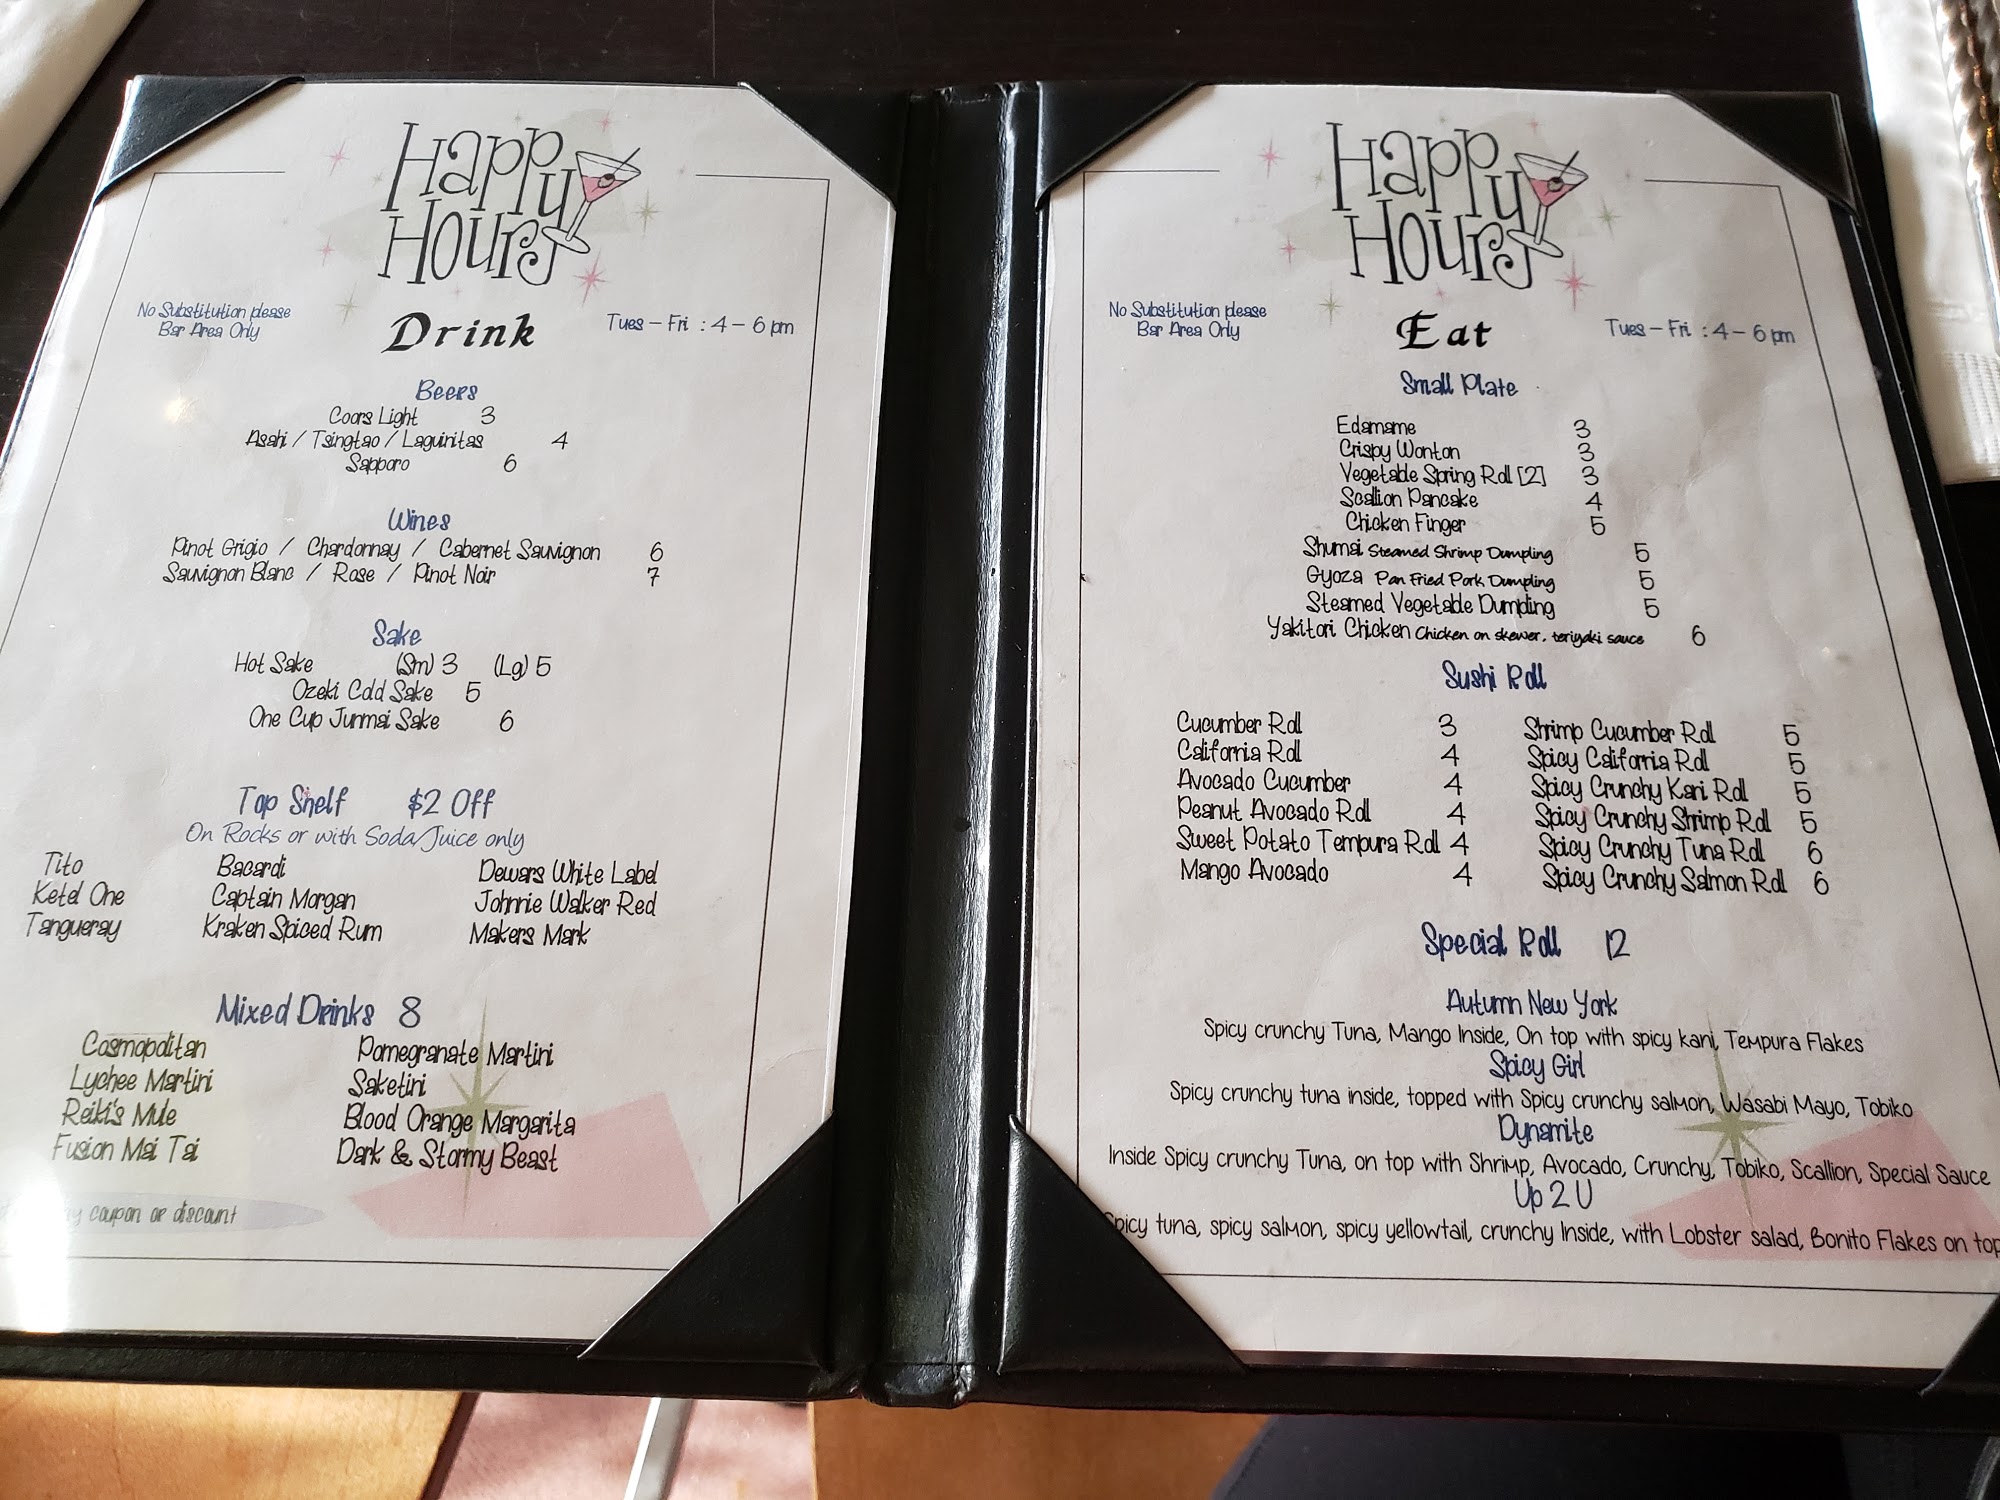 Happy
Hours
No Substitution please
Bar Area Only
Drink
Tues - Fri : 4 - 6 pm
Beers
Coors Light 3
Asahi / Tsingtao / Laguinitas 4
Sapporo 6
Wines
Pinot Grigio / Chardonnay / Cabernet Sauvignon 6
Sauvignon Blanc / Rose / Pinot Noir 7
Sake
Hot Sake (Sm) 3 (Lg) 5
Ozeki Cold Sake 5
One Cup Junmai Sake 6
Top Shelf $2 Off
On Rocks or with Soda/Juice only
Tito Bacardi Dewars White Label
Ketel One Captain Morgan Johnnie Walker Red
Tangueray Kraken Spiced Rum Makers Mark
Mixed Drinks 8
Cosmopolitan Pomegranate Martini
Lychee Martini Saketini
Reiki's Mule Blood Orange Margarita
Fusion Mai Tai Dark & Stormy Beast
coupon or discount
Happy
Hours
No Substitution please
Bar Area Only
Eat
Tues - Fri : 4 - 6 pm
Small Plate
Edamame 3
Crispy Wonton 3
Vegetable Spring Roll [2] 3
Scallion Pancake 4
Chicken Finger 5
Shumai Steamed Shrimp Dumpling 5
Gyoza Pan Fried Pork Dumpling 5
Steamed Vegetable Dumpling 5
Yakitori Chicken Chicken on skewer, teriyaki sauce 6
Sushi Roll
Cucumber Roll 3 Shrimp Cucumber Roll 5
California Roll 4 Spicy California Roll 5
Avocado Cucumber 4 Spicy Crunchy Kani Roll 5
Peanut Avocado Roll 4 Spicy Crunchy Shrimp Roll 5
Sweet Potato Tempura Roll 4 Spicy Crunchy Tuna Roll 6
Mango Avocado 4 Spicy Crunchy Salmon Roll 6
Special Roll 12
Autumn New York
Spicy crunchy Tuna, Mango Inside, On top with spicy kani, Tempura Flakes
Spicy Girl
Spicy crunchy tuna inside, topped with Spicy crunchy salmon, Wasabi Mayo, Tobiko
Dynamite
Inside Spicy crunchy Tuna, on top with Shrimp, Avocado, Crunchy, Tobiko, Scallion, Special Sauce
Up 2 U
Spicy tuna, spicy salmon, spicy yellowtail, crunchy Inside, with Lobster salad, Bonito Flakes on top